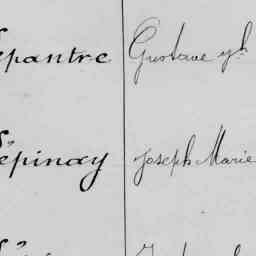 Lepantre Gustave
Lépinay Joseph Marie